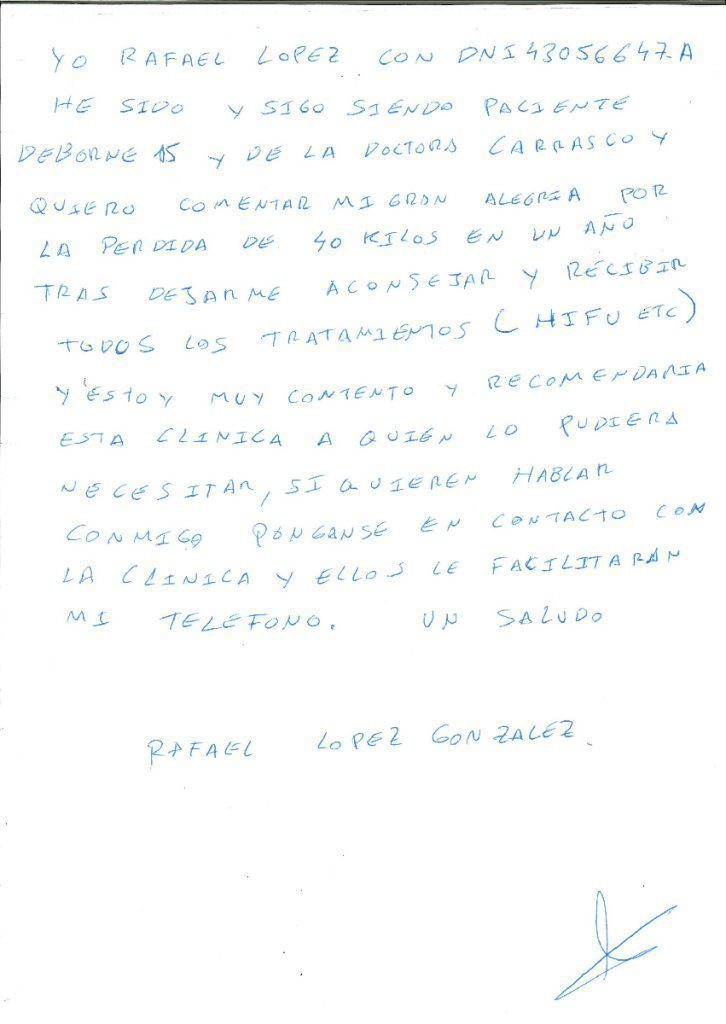 YO RAFAEL LOPEZ CON DNI 43056647-A
HE SIDO Y SIGO SIENDO PACIENTE
DEBORNE 15 Y DE LA DOCTORA CARRASCO Y
QUIERO COMENTAR MI GRAN ALEGRIA POR
LA PERDIDA DE 40 KILOS EN UN AÑO
TRAS DEJARME ACONSEJAR Y RECIBIR
TODOS LOS TRATAMIENTOS (HIFU ETC)
Y ESTOY MUY CONTENTO Y RECOMENDARIA
ESTA CLINICA A QUIEN LO PUDIERA
NECESITAR, SI QUIEREN HABLAR
CONMIGO PONGANSE EN CONTACTO CON
LA CLINICA Y ELLOS LE FACILITARAN
MI TELEFONO. UN SALUDO
RAFAEL LOPEZ GONZALEZ.